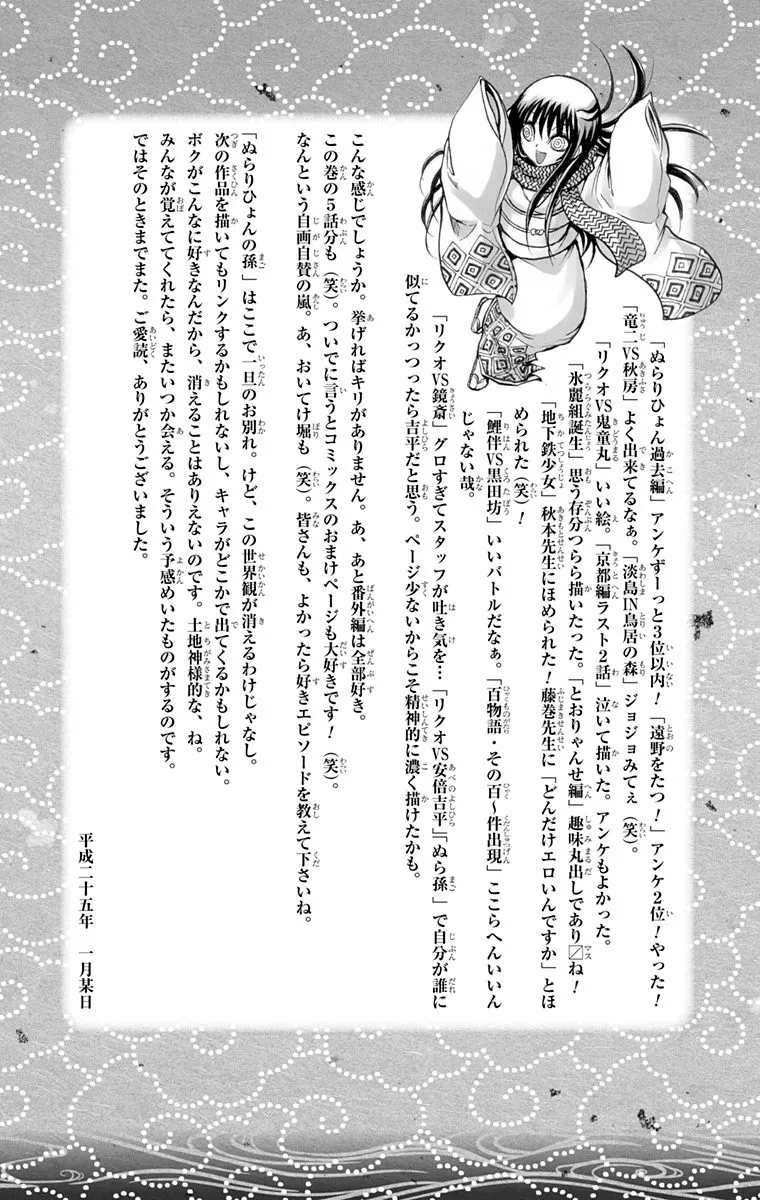 「ぬらりひょん過去編」アンケずーっと3位以内！「遠野をたつ！」アンケ2位！やった！
「竜二VS秋房」よく出来てるなぁ。「淡島IN鳥居の森」ジョジョみてぇ（笑）。
「リクオVS鬼童丸」いい絵。「京都編ラスト2話」泣いて描いた。アンケもよかった。
「氷麗組誕生」思う存分つらら描いたった。「とおりゃんせ編」趣味丸出しであり〼ね！
「地下鉄少女」秋本先生にほめられた！藤巻先生に「どんだけエロいんですか」とほ
められた（笑）！
「鯉伴VS黒田坊」いいバトルだなぁ。「百物語・その百〜件出現」ここらへんいいん
じゃない哉。
「リクオVS鏡斎」グロすぎてスタッフが吐き気を…「リクオVS安倍吉平」「ぬら孫」で自分が誰に
似てるかっつったら吉平だと思う。ページ少ないからこそ精神的に濃く描けたかも。
こんな感じでしょうか。挙げればキリがありません。あ、あと番外編は全部好き。
この巻の5話分も（笑）。ついでに言うとコミックスのおまけページも大好きです！（笑）。
なんという自画自賛の嵐。あ、おいてけ堀も（笑）。皆さんも、よかったら好きエピソードを教えて下さいね。
「ぬらりひょんの孫」はここで一旦のお別れ。けど、この世界観が消えるわけじゃなし。
次の作品を描いてもリンクするかもしれないし、キャラがどこかで出てくるかもしれない。
ボクがこんなに好きなんだから、消えることはありえないのです。土地神様的な、ね。
みんなが覚えててくれたら、またいつか会える。そういう予感めいたものがするのです。
ではそのときまでまた。ご愛読、ありがとうございました。
平成二十五年　一月某日